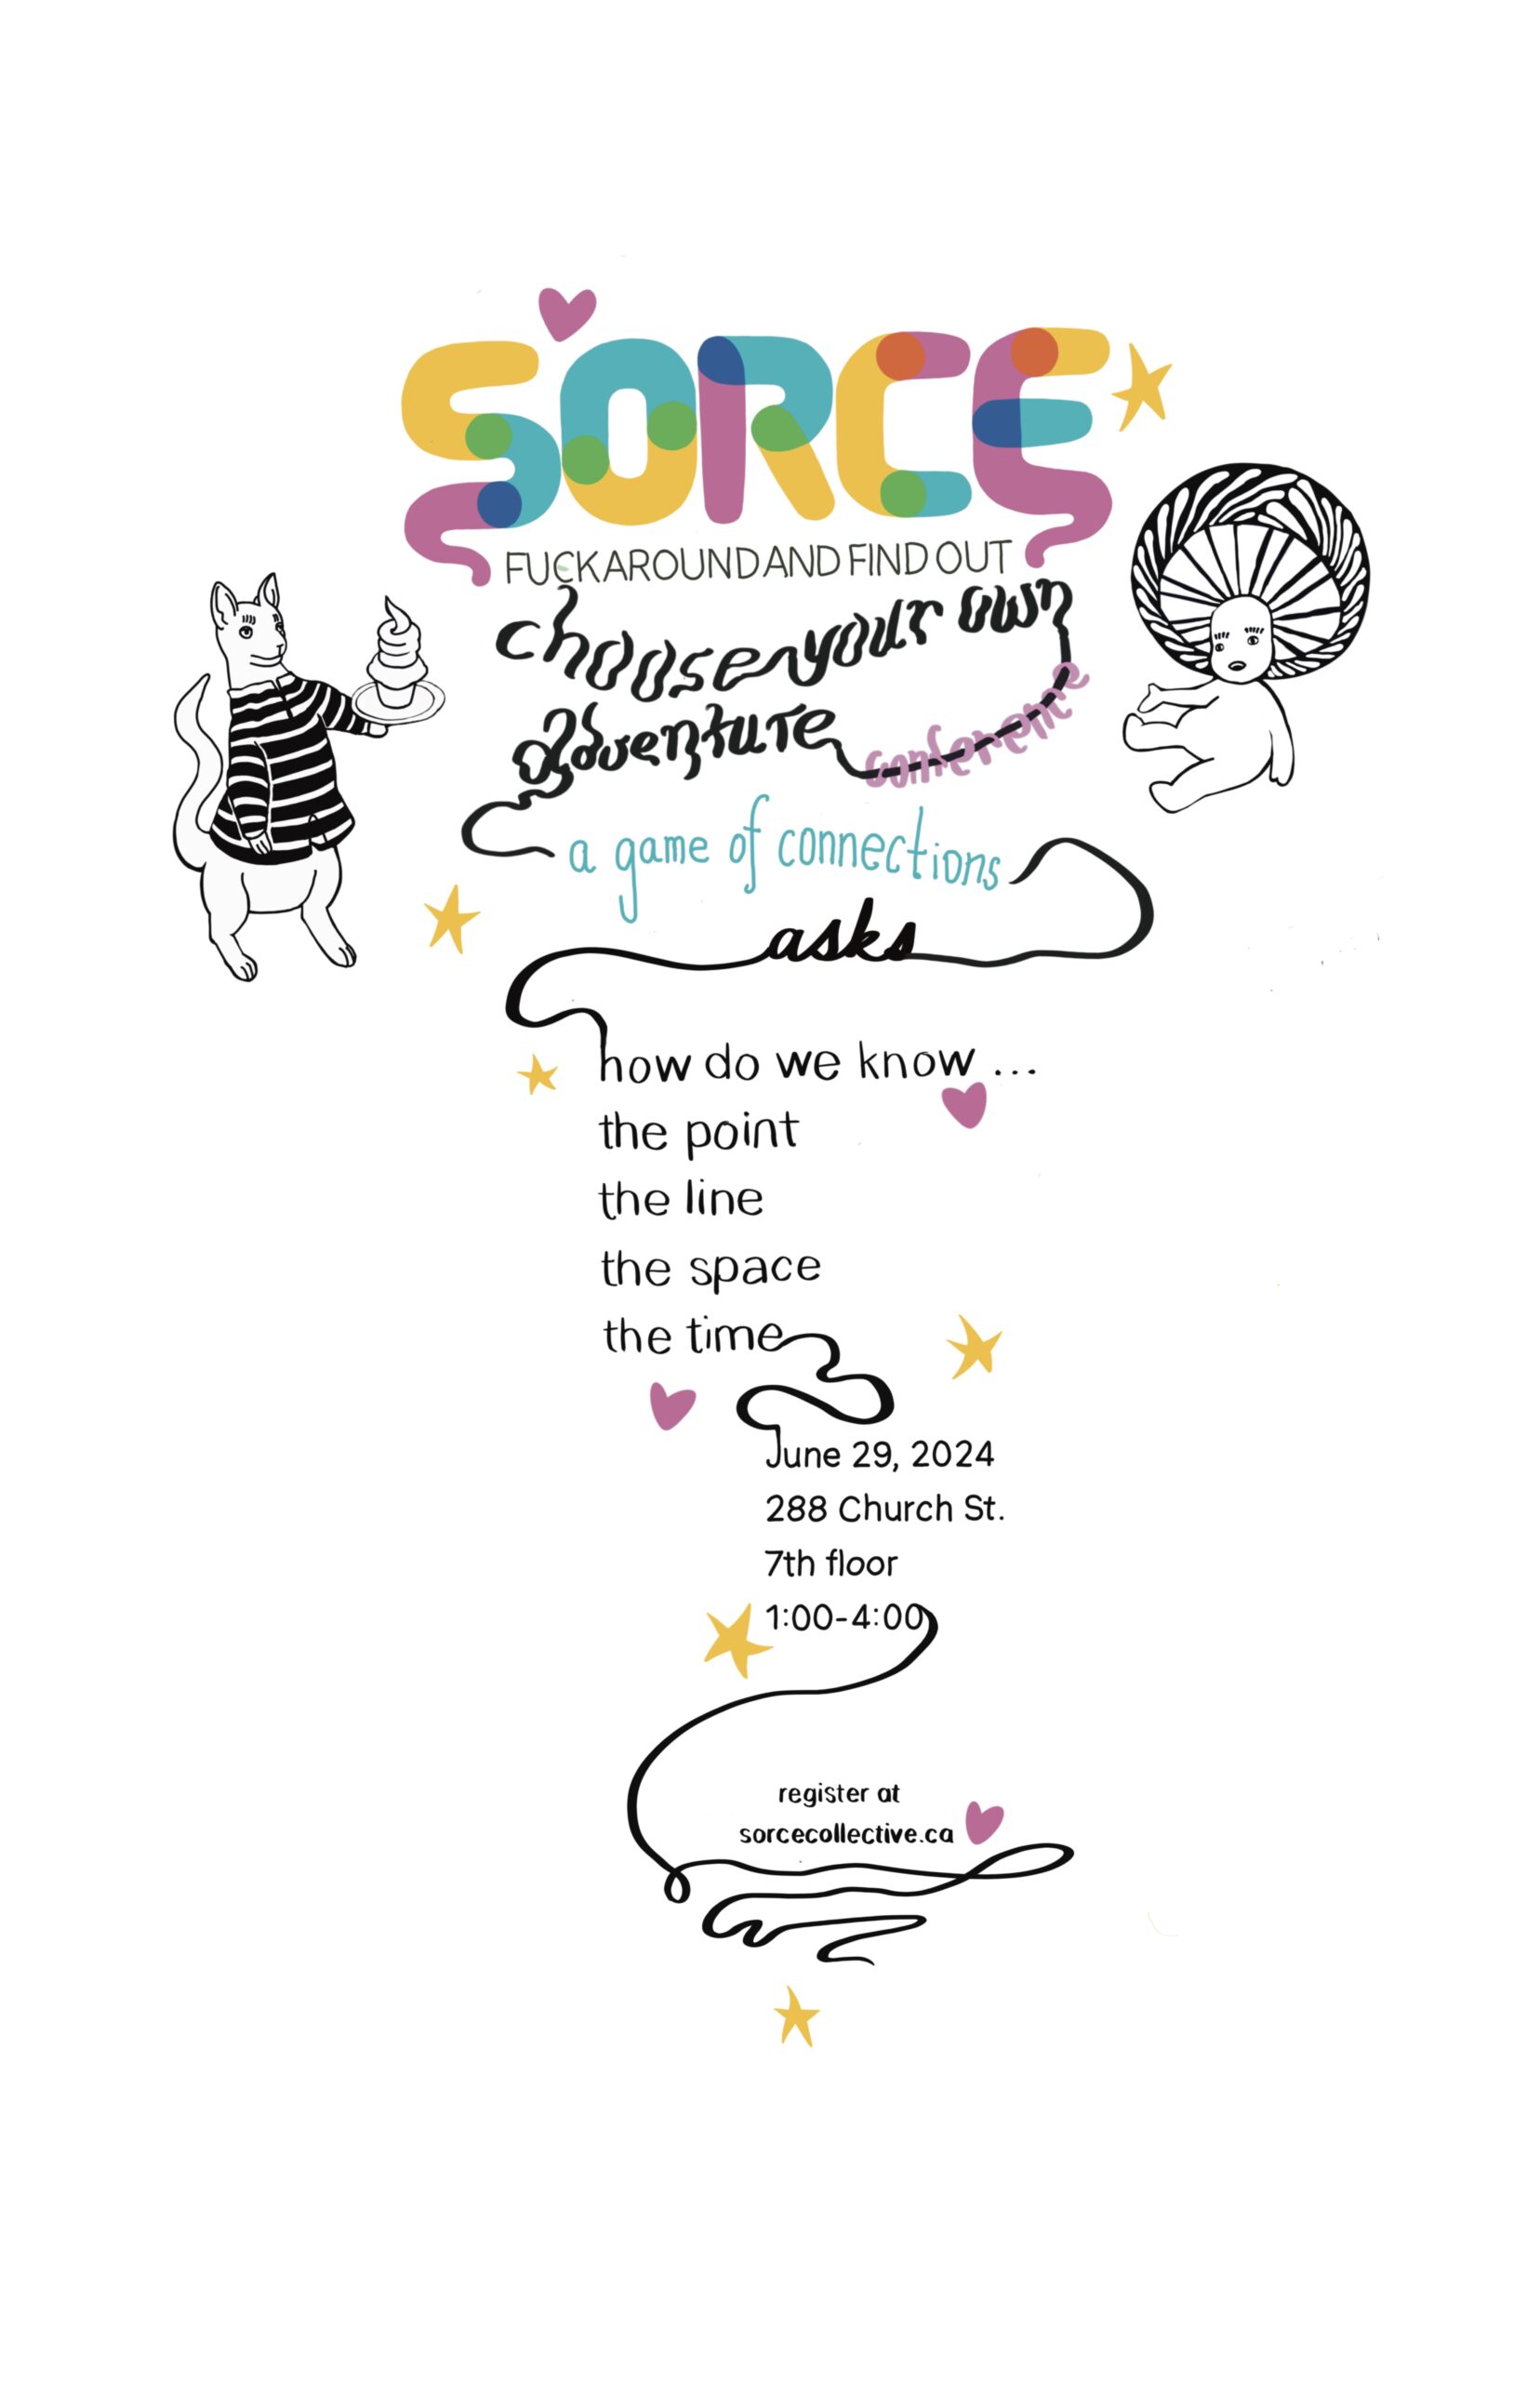 SORCE
FUCKAROUNDAND FIND OUT
choose your own
adventure conference
a game of connections
asks
how do we know ...
the point
the line
the space
the time
June 29, 2024
288 Church St.
7th floor
1:00-4:00
register at
sorcecollective.ca